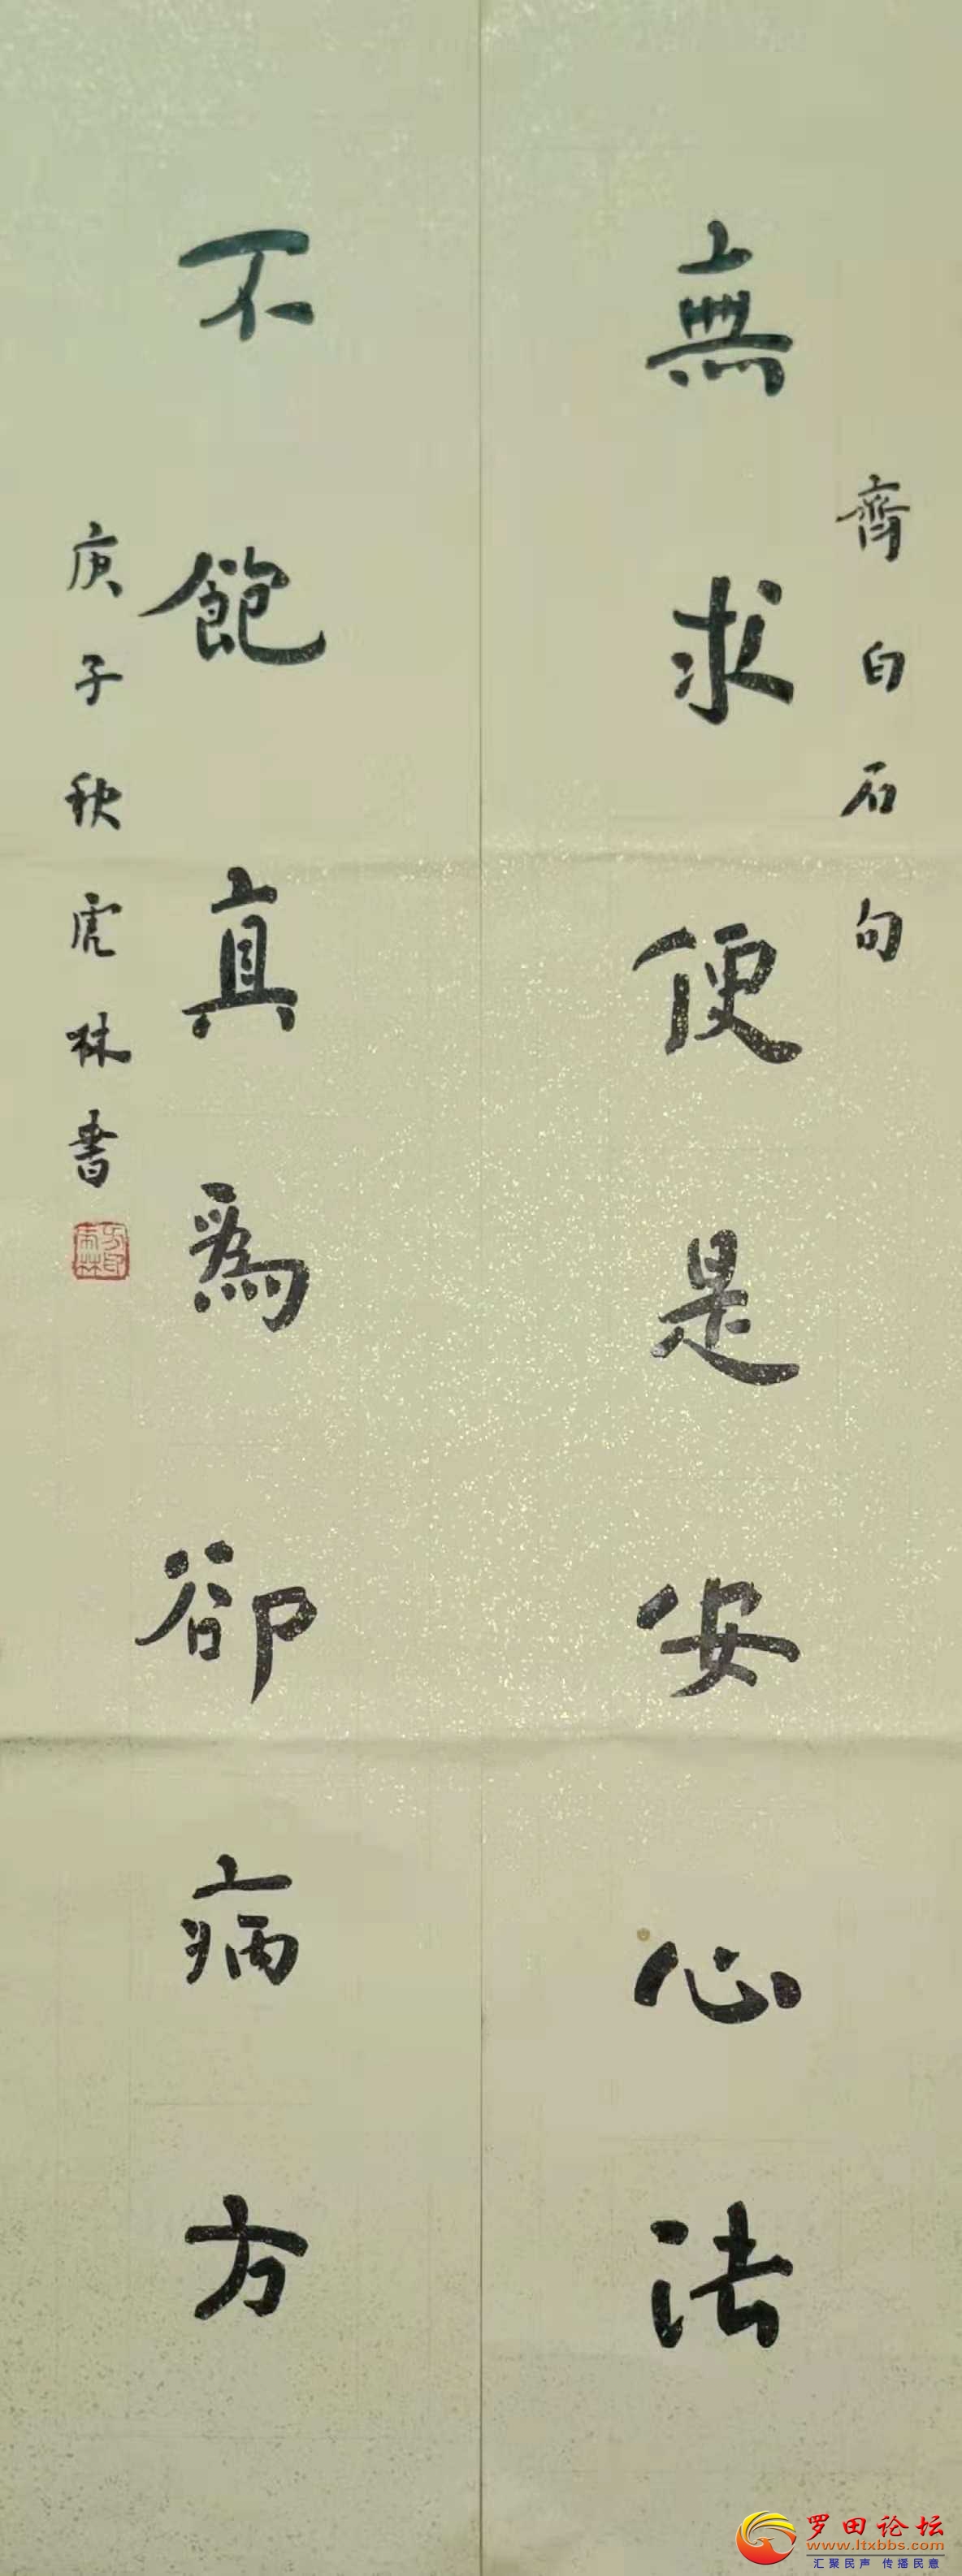 齊白石句
無求便是安心法
不飽真為卻病方
庚子秋虎林書
罗田论坛
www.ltxbbs.com
汇聚民声 传播民意